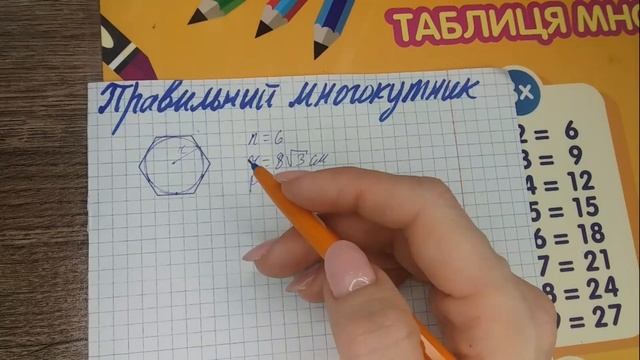 ТАБЛИЦЯ МНО
Правильний многокутник
r
n = 6
= 8√3 см
x
2 = 6
3 = 9
4 = 12
5 = 15
6 = 18
7 = 21
8 = 24
= 27